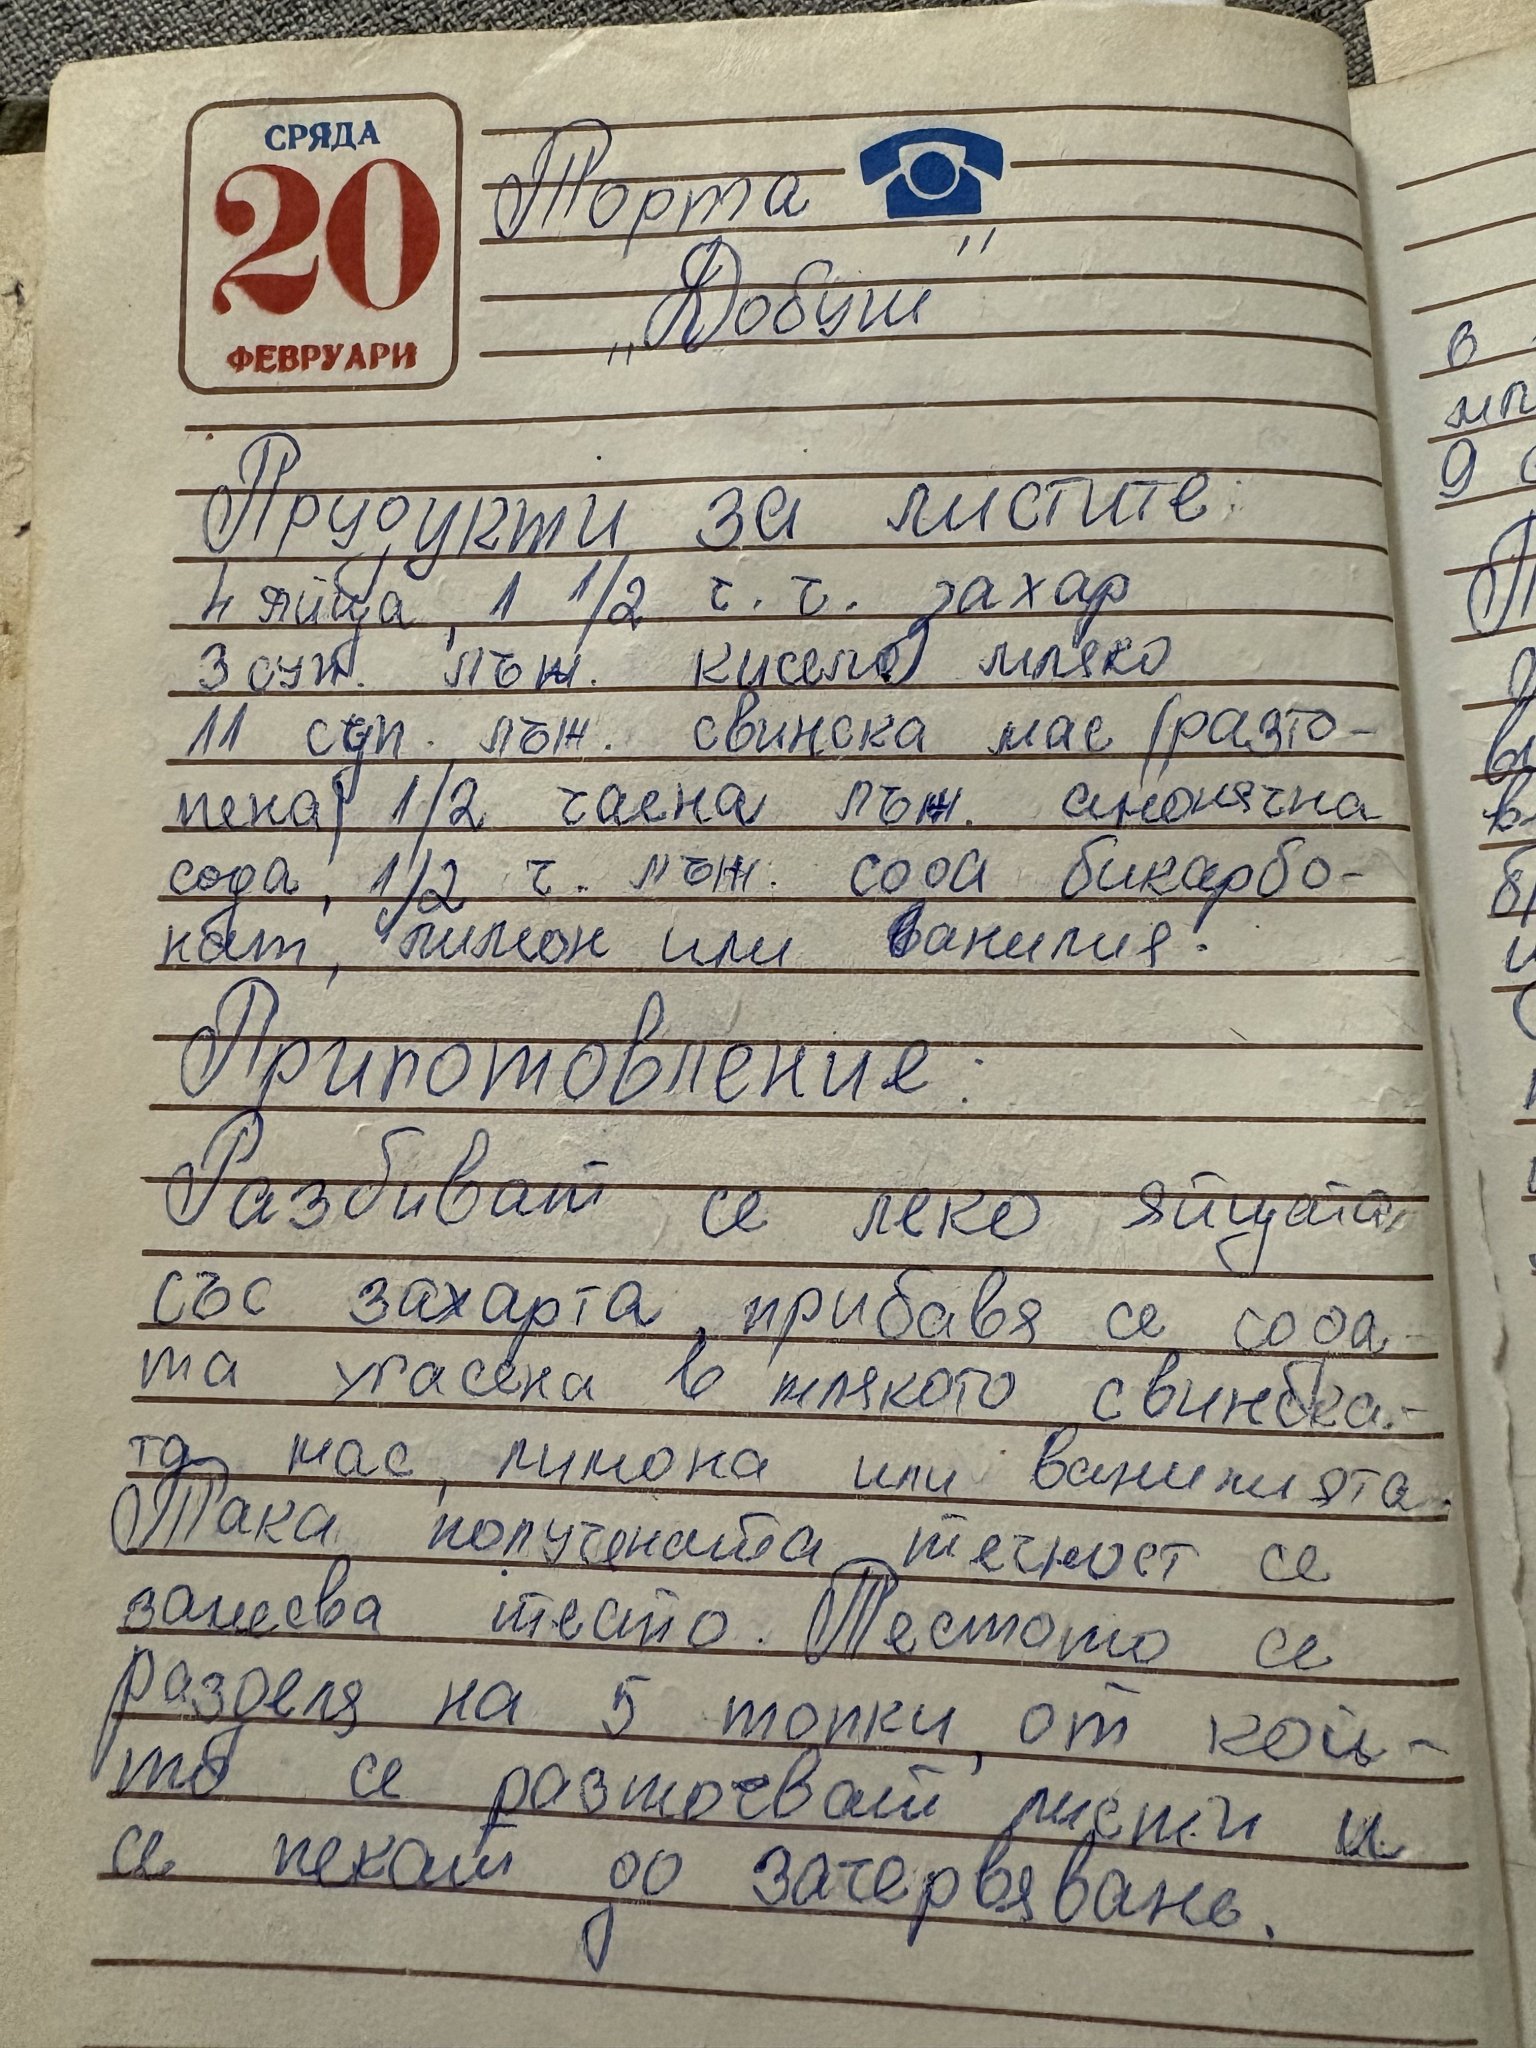 СРЯДА
20
ФЕВРУАРИ
Торта
„Добуш"
Продукти за листите:
4 яйца, 1 1/2 ч. ч. захар
3 суп. лъж. кисело мляко
11 суп. лъж. свинска мас (разто-
пена) 1/2 чаена лъж. амонячна
сода, 1/2 ч. лъж. сода бикарбо-
нат, лимон или ванилия.
Приготовление:
Разбиват се леко яйцата
със захарта, прибавя се сода-
та угасена в млякото свинска-
та мас, лимона или ванилията.
Така получената течност се
замесва тесто. Тестото се
разделя на 5 топки, от кои-
то се разточват листи и
се пекат до зачервяване.
в
мл
9